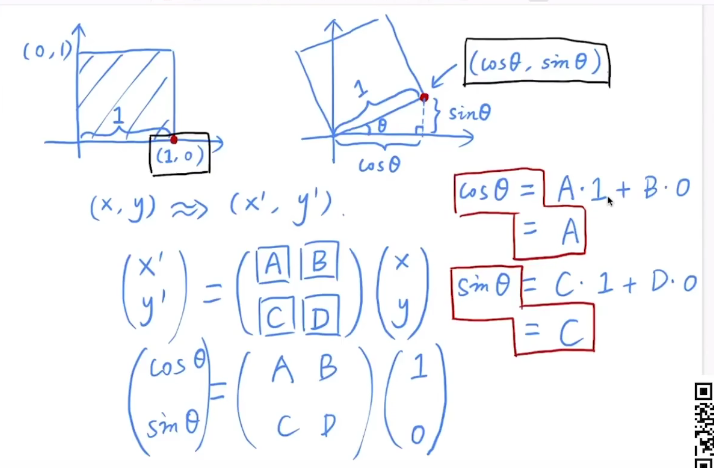 (0,1)
1
(1,0)
1
θ
cosθ
} sinθ
(cosθ, sinθ)
(x,y) ⇝ (x', y').
(x' y') = (A B C D) (x y)
(cosθ sinθ) = (A B C D) (1 0)
cosθ = A·1 + B·0
= A
sinθ = C·1 + D·0
= C